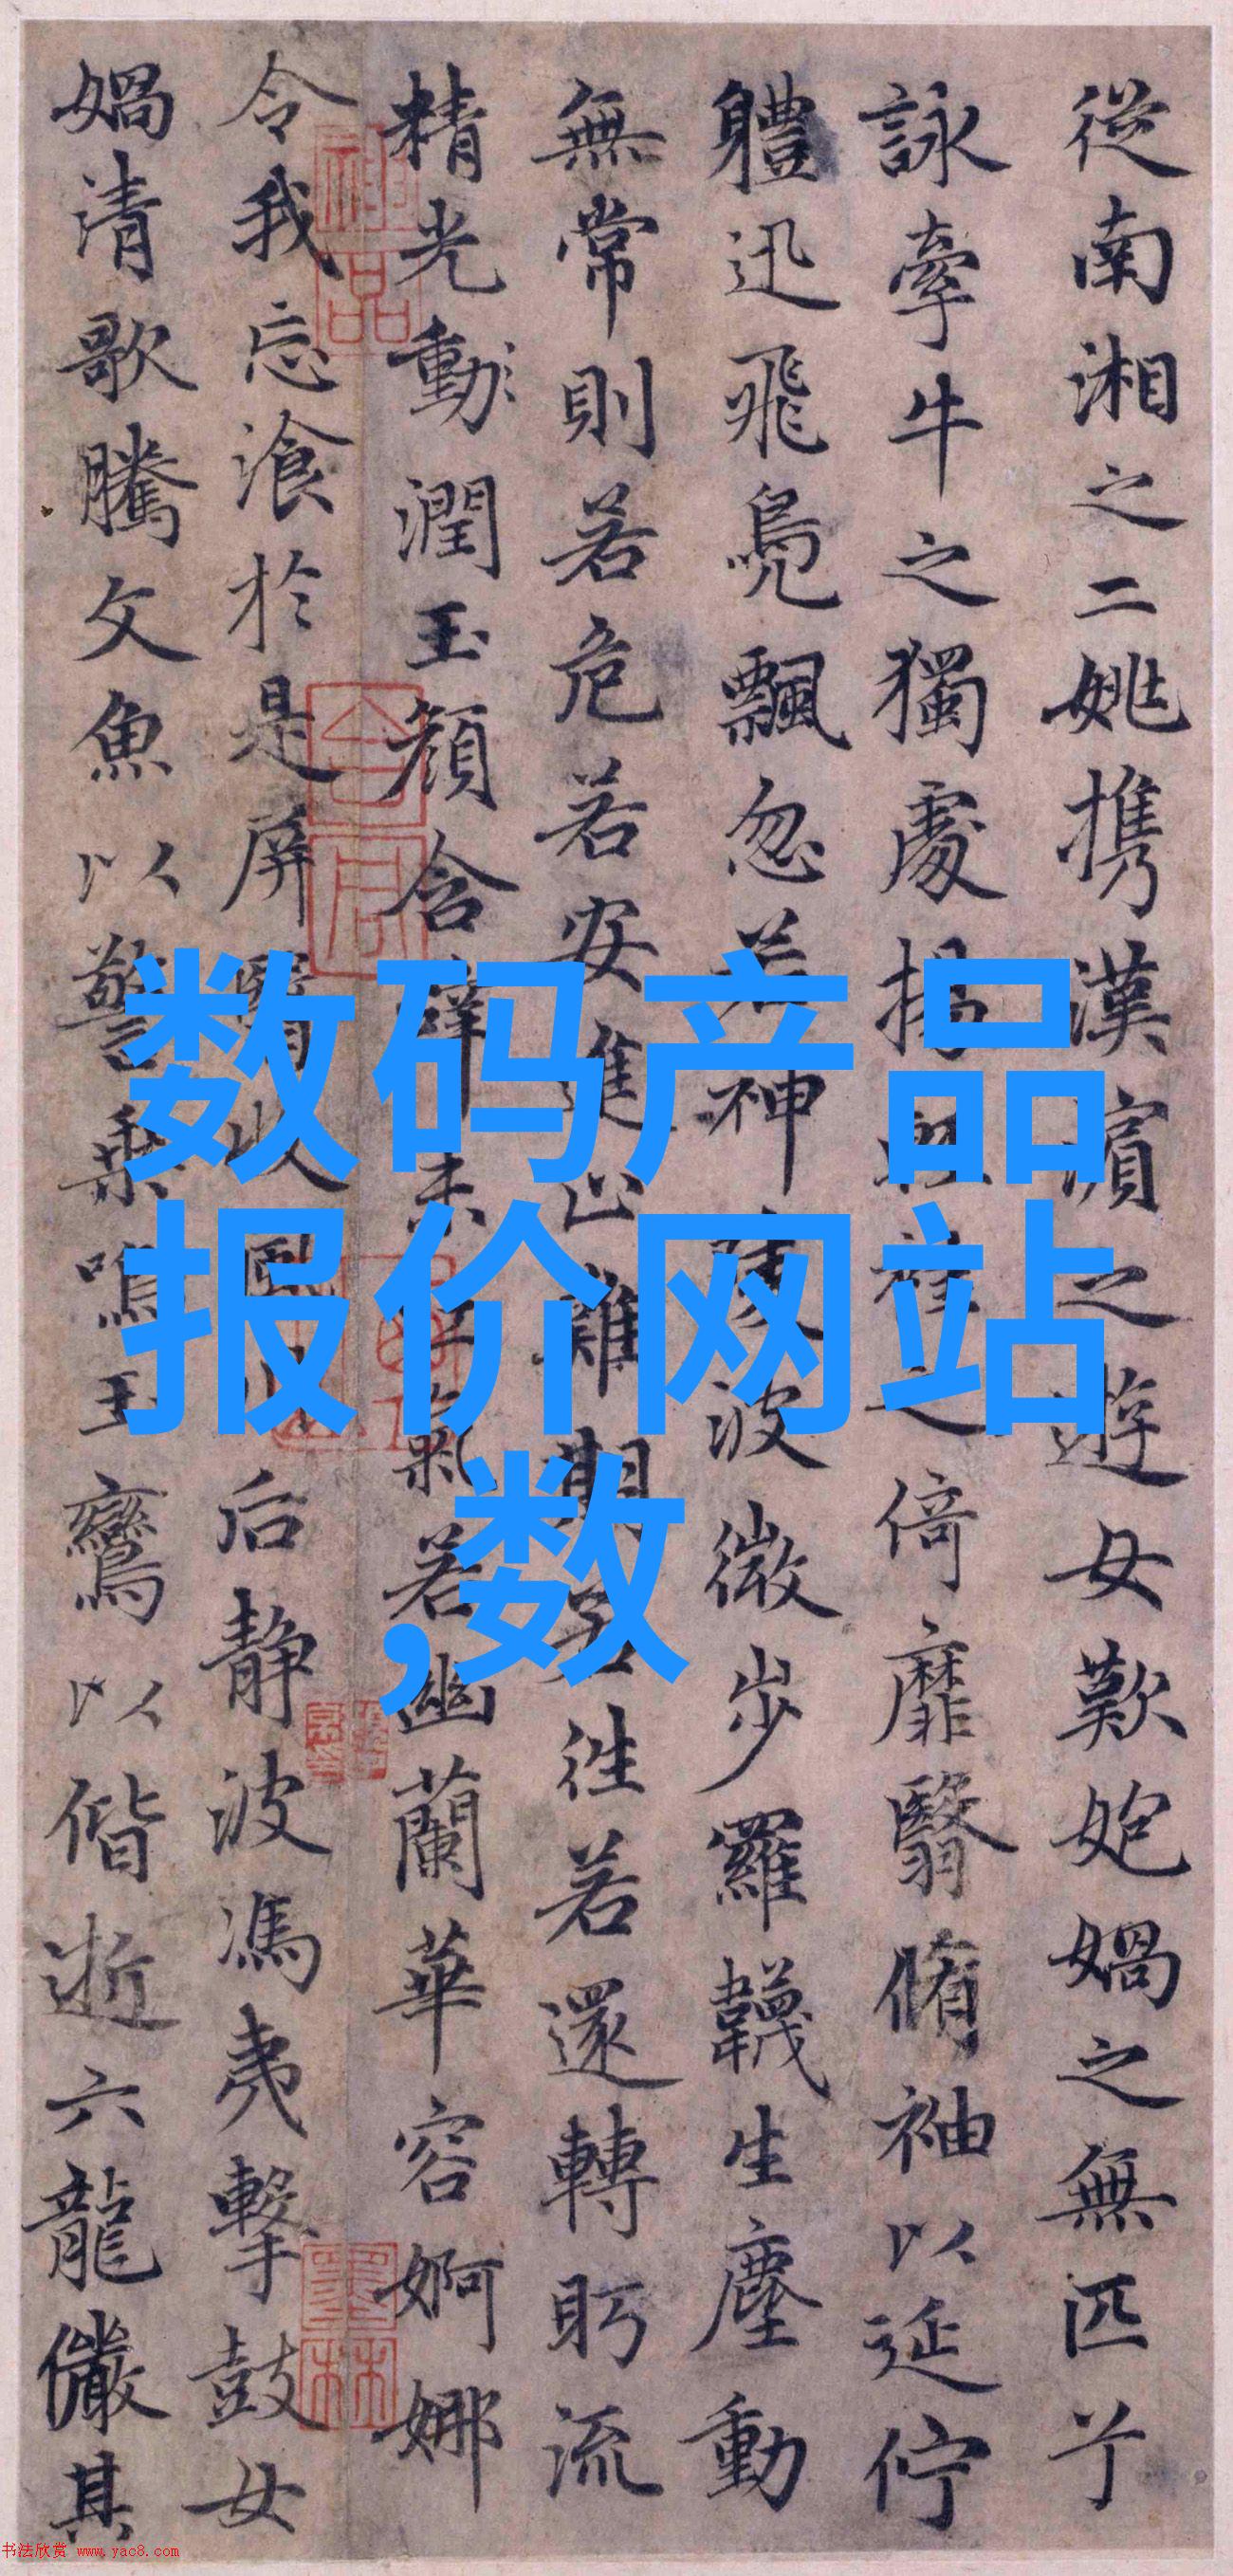 從南湘之二姚携漢濱之遊女歎媧之無匹兮
詠牽牛之獨處揚袿之倚靡翳脩袖以延佇
軆迅飛鳧飄忽若神陵波微步羅韈生塵動
無常則若危若安進止難期若往若還轉眄流
精光動潤玉顏含辭未吐氣若幽蘭華容婀娜
令我忘湌於是屏翳收風川后靜波馮夷擊鼓女
媧清歌騰文魚以警乘鳴玉鸞以偕逝六龍儼其
数码产品
报价网站
,数
书法欣赏 www.yac8.com